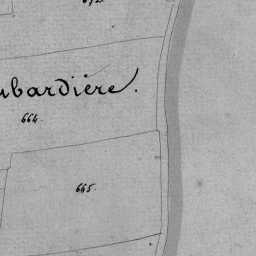 ubardière.
664.
665.